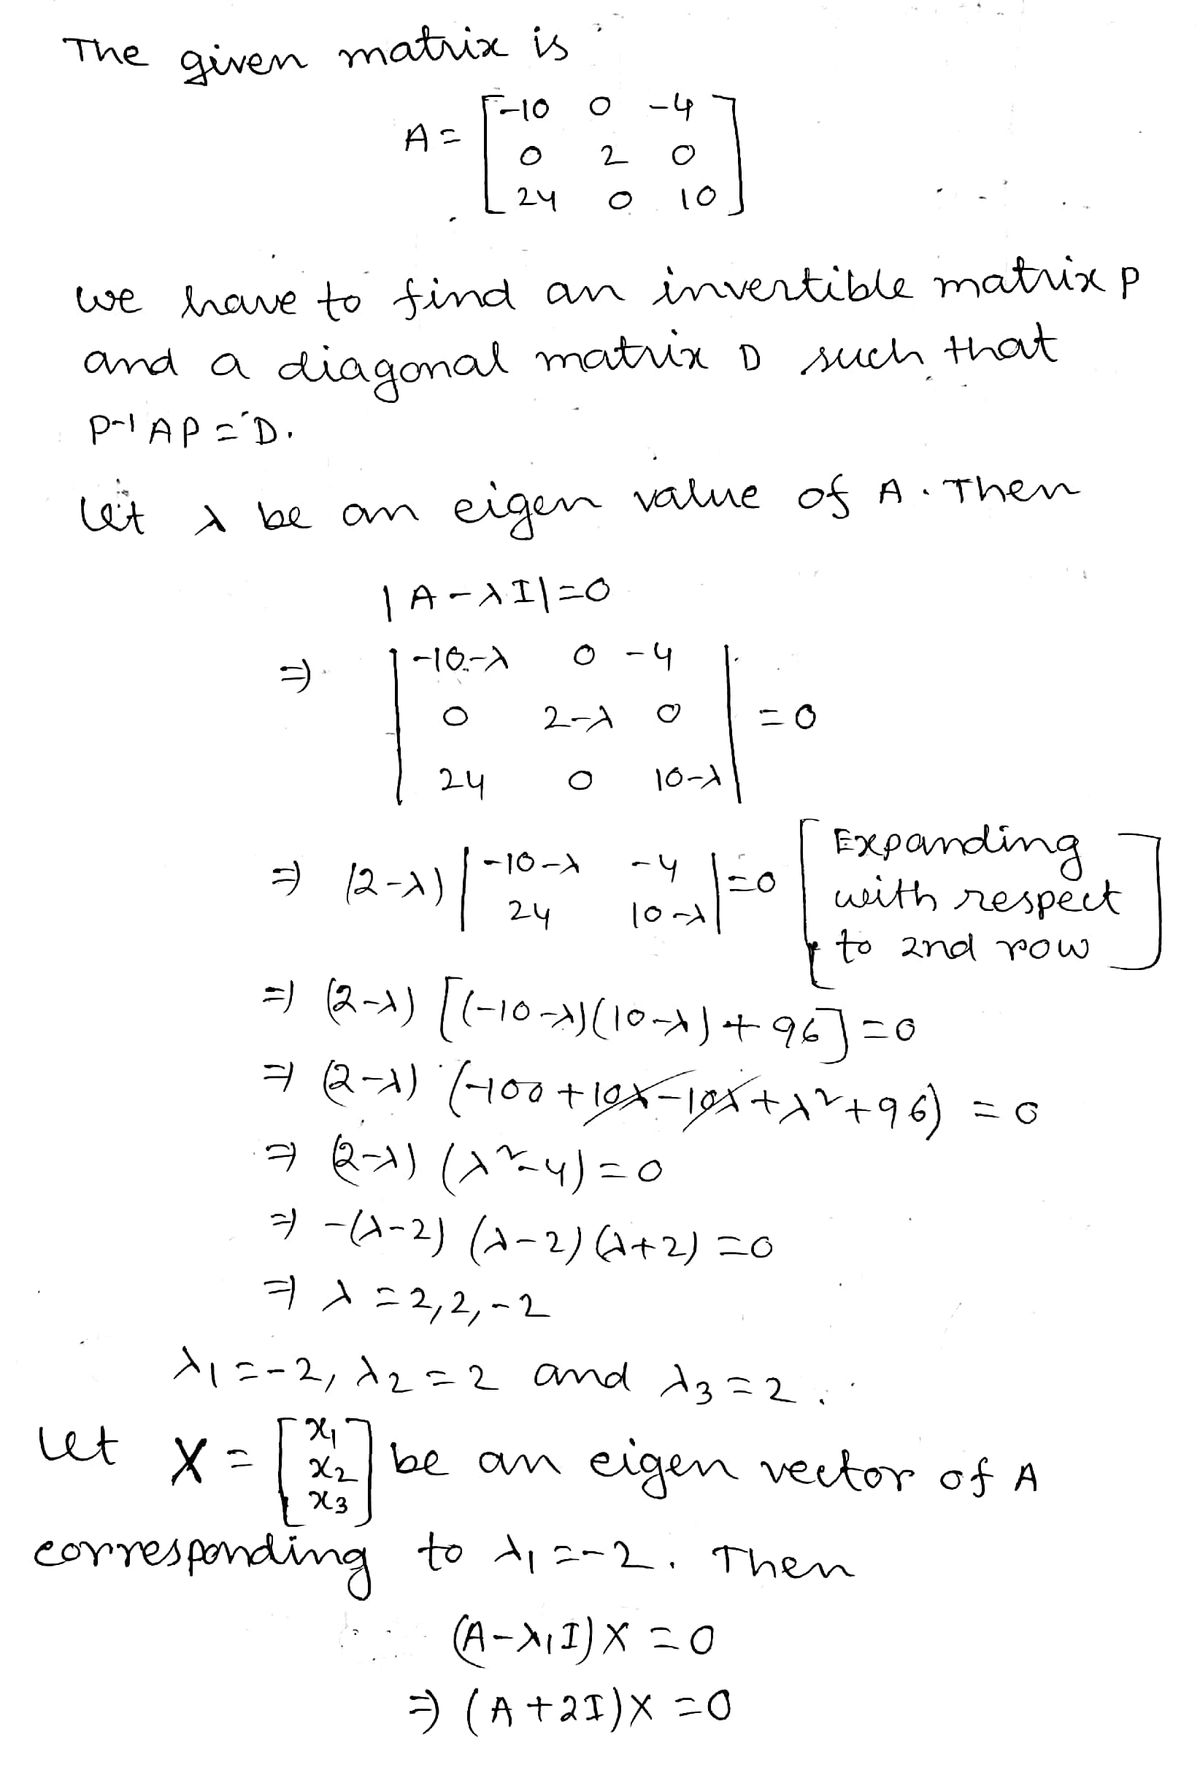 The given matrix is
A = [ -10 0 -4
0 2 0
24 0 10 ]
we have to find an invertible matrix P
and a diagonal matrix D such that
P⁻¹AP = D.
let λ be an eigen value of A. Then
|A-λI|=0
⇒ | -10-λ 0 -4
0 2-λ 0 | = 0
24 0 10-λ |
⇒ (2-λ) | -10-λ -4 | = 0 [ Expanding
24 10-λ | with respect
to 2nd row ]
⇒ (2-λ) [(-10-λ)(10-λ)+96] = 0
⇒ (2-λ) (-100+10λ-10λ+λ²+96) = 0
⇒ (2-λ) (λ²-4) = 0
⇒ -(λ-2) (λ-2) (λ+2) = 0
⇒ λ = 2,2,-2
λ1 = -2, λ2 = 2 and λ3 = 2.
let X = [ x1 x2 x3 ] be an eigen vector of A
corresponding to λ1 = -2. Then
(A-λ1I)X = 0
⇒ (A+2I)X = 0